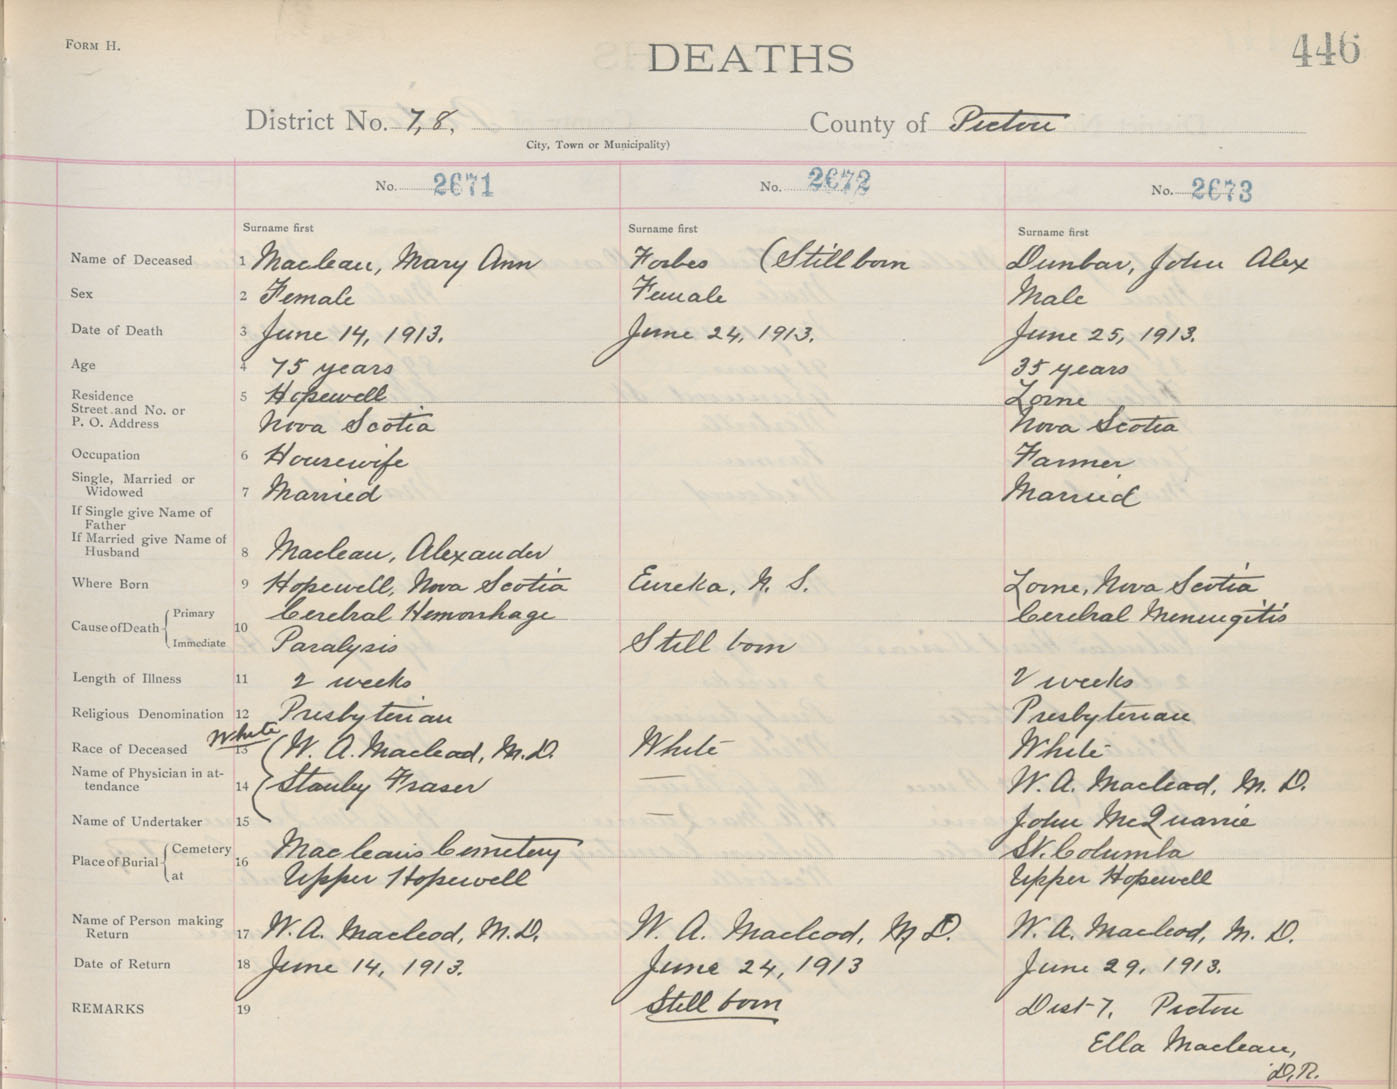 Form H.
DEATHS
446
District No. 7, 8, County of Pictou
City, Town or Municipality)
No. 2671 No. 2672 No. 2673
Surname first Surname first Surname first
Name of Deceased 1 Maclean, Mary Ann Forbes (Still born Dunbar, John Alex
Sex 2 Female Female Male
Date of Death 3 June 14, 1913. June 24, 1913. June 25, 1913.
Age 4 75 years 35 years
Residence 5 Hopewell Lorne
Street and No. or
P. O. Address Nova Scotia Nova Scotia
Occupation 6 Housewife Farmer
Single, Married or
Widowed 7 Married Married
If Single give Name of
Father
If Married give Name of
Husband 8 Maclean, Alexander
Where Born 9 Hopewell, Nova Scotia Eureka, N. S. Lorne, Nova Scotia
Cause of Death { Primary 10 Cerebral Hemorrhage Cerebral Meningitis
Immediate Paralysis Still born
Length of Illness 11 2 weeks 2 weeks
Religious Denomination 12 Presbyterian Presbyterian
White
Race of Deceased 13 ( W. A. Macleod, M.D. White White
Name of Physician in at-
tendance 14 Stanley Fraser — W. A. Macleod, M. D.
Name of Undertaker 15 — John McQuarrie
Place of Burial { Cemetery 16 Maclean's Cemetery St. Columba
at Upper Hopewell Upper Hopewell
Name of Person making
Return 17 W. A. Macleod, M.D. W. A. Macleod, M D. W. A. Macleod, M. D.
Date of Return 18 June 14, 1913. June 24, 1913 June 29, 1913.
REMARKS 19 Still born Dist 7, Pictou
Ella Maclean,
D.R.